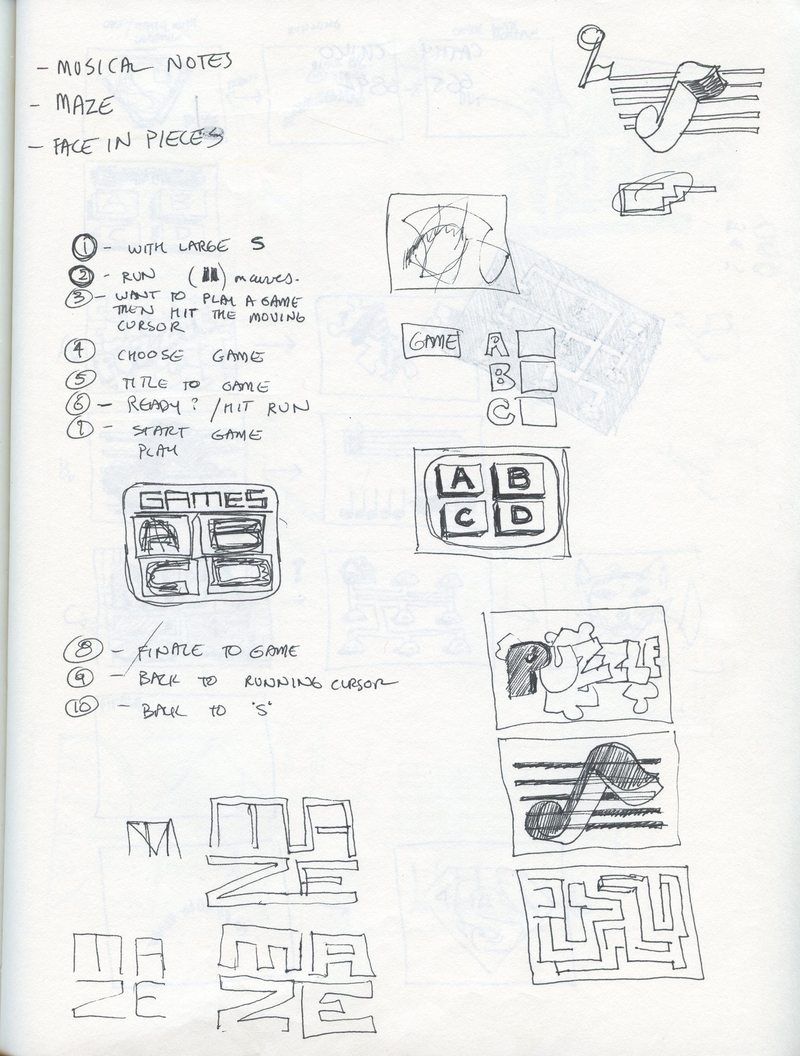 - MUSICAL NOTES
- MAZE
- FACE IN PIECES
① - WITH LARGE S
② - RUN ( ) moves.
③ - WANT TO PLAY A GAME
THEN HIT THE MOVING
CURSOR
④ CHOOSE GAME
⑤ TITLE TO GAME
⑥ - READY? / HIT RUN
⑦ - START GAME
PLAY
GAME A
B
C
A B
C D
GAMES
A B
C D
⑧ - FINALE TO GAME
⑨ - BACK TO RUNNING CURSOR
⑩ - BACK TO "S"
PUZZLE
M
MA
ZE
MA
ZE
MA
ZE